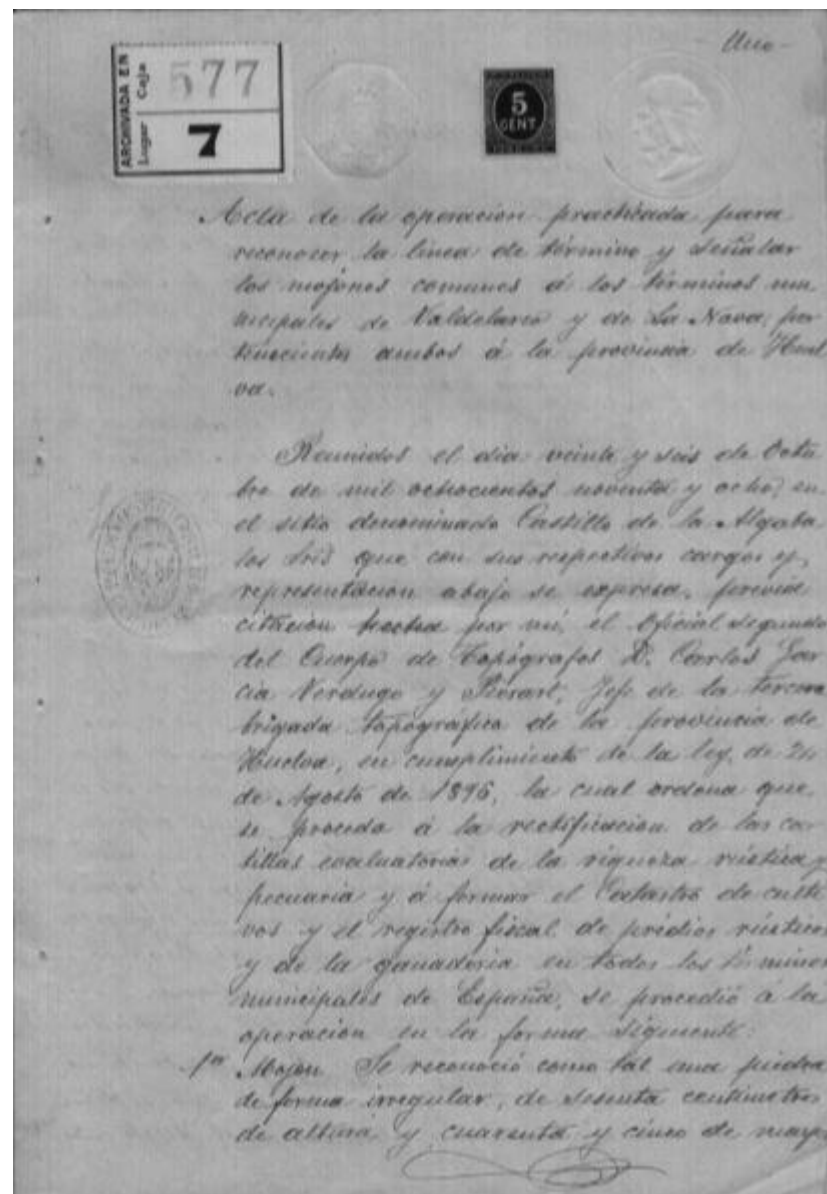 Uno -
ARCHIVADA EN
Lugar Caja
577
7
5
CENT
Acta de la operación practicada para
reconocer la línea de término y señalar
los mojones comunes á los términos mu
nicipales de Valdelarco y de La Nava, per
tenecientes ambos á la provincia de Huel
va.
Reunidos el dia veinte y seis de Octu
bre de mil ochocientos noventa y ocho, en
el sitio denominado Castillo de la Algaba
los Sres que con sus respectivos cargos y
representación abajo se expresa, previa
citación hecha por mí, el Oficial segundo
del Cuerpo de Topógrafos D. Carlos Gar
cía Verdugo y Jefe de la tercera
brigada topográfica de la provincia de
Huelva, en cumplimiento de la ley de 24
de Agosto de 1896, la cual ordena que
se proceda á la rectificación de las car
tillas evaluatorias de la riqueza rústica y
pecuaria y á formar el Catastro de culti
vos y el registro fiscal de predios rústicos
y de la ganadería en todos los términos
municipales de España, se procedió á la
operación en la forma siguiente:
1er Mojon Se reconoció como tal una piedra
de forma irregular, de sesenta centímetros
de altura y cuarenta y cinco de mayor